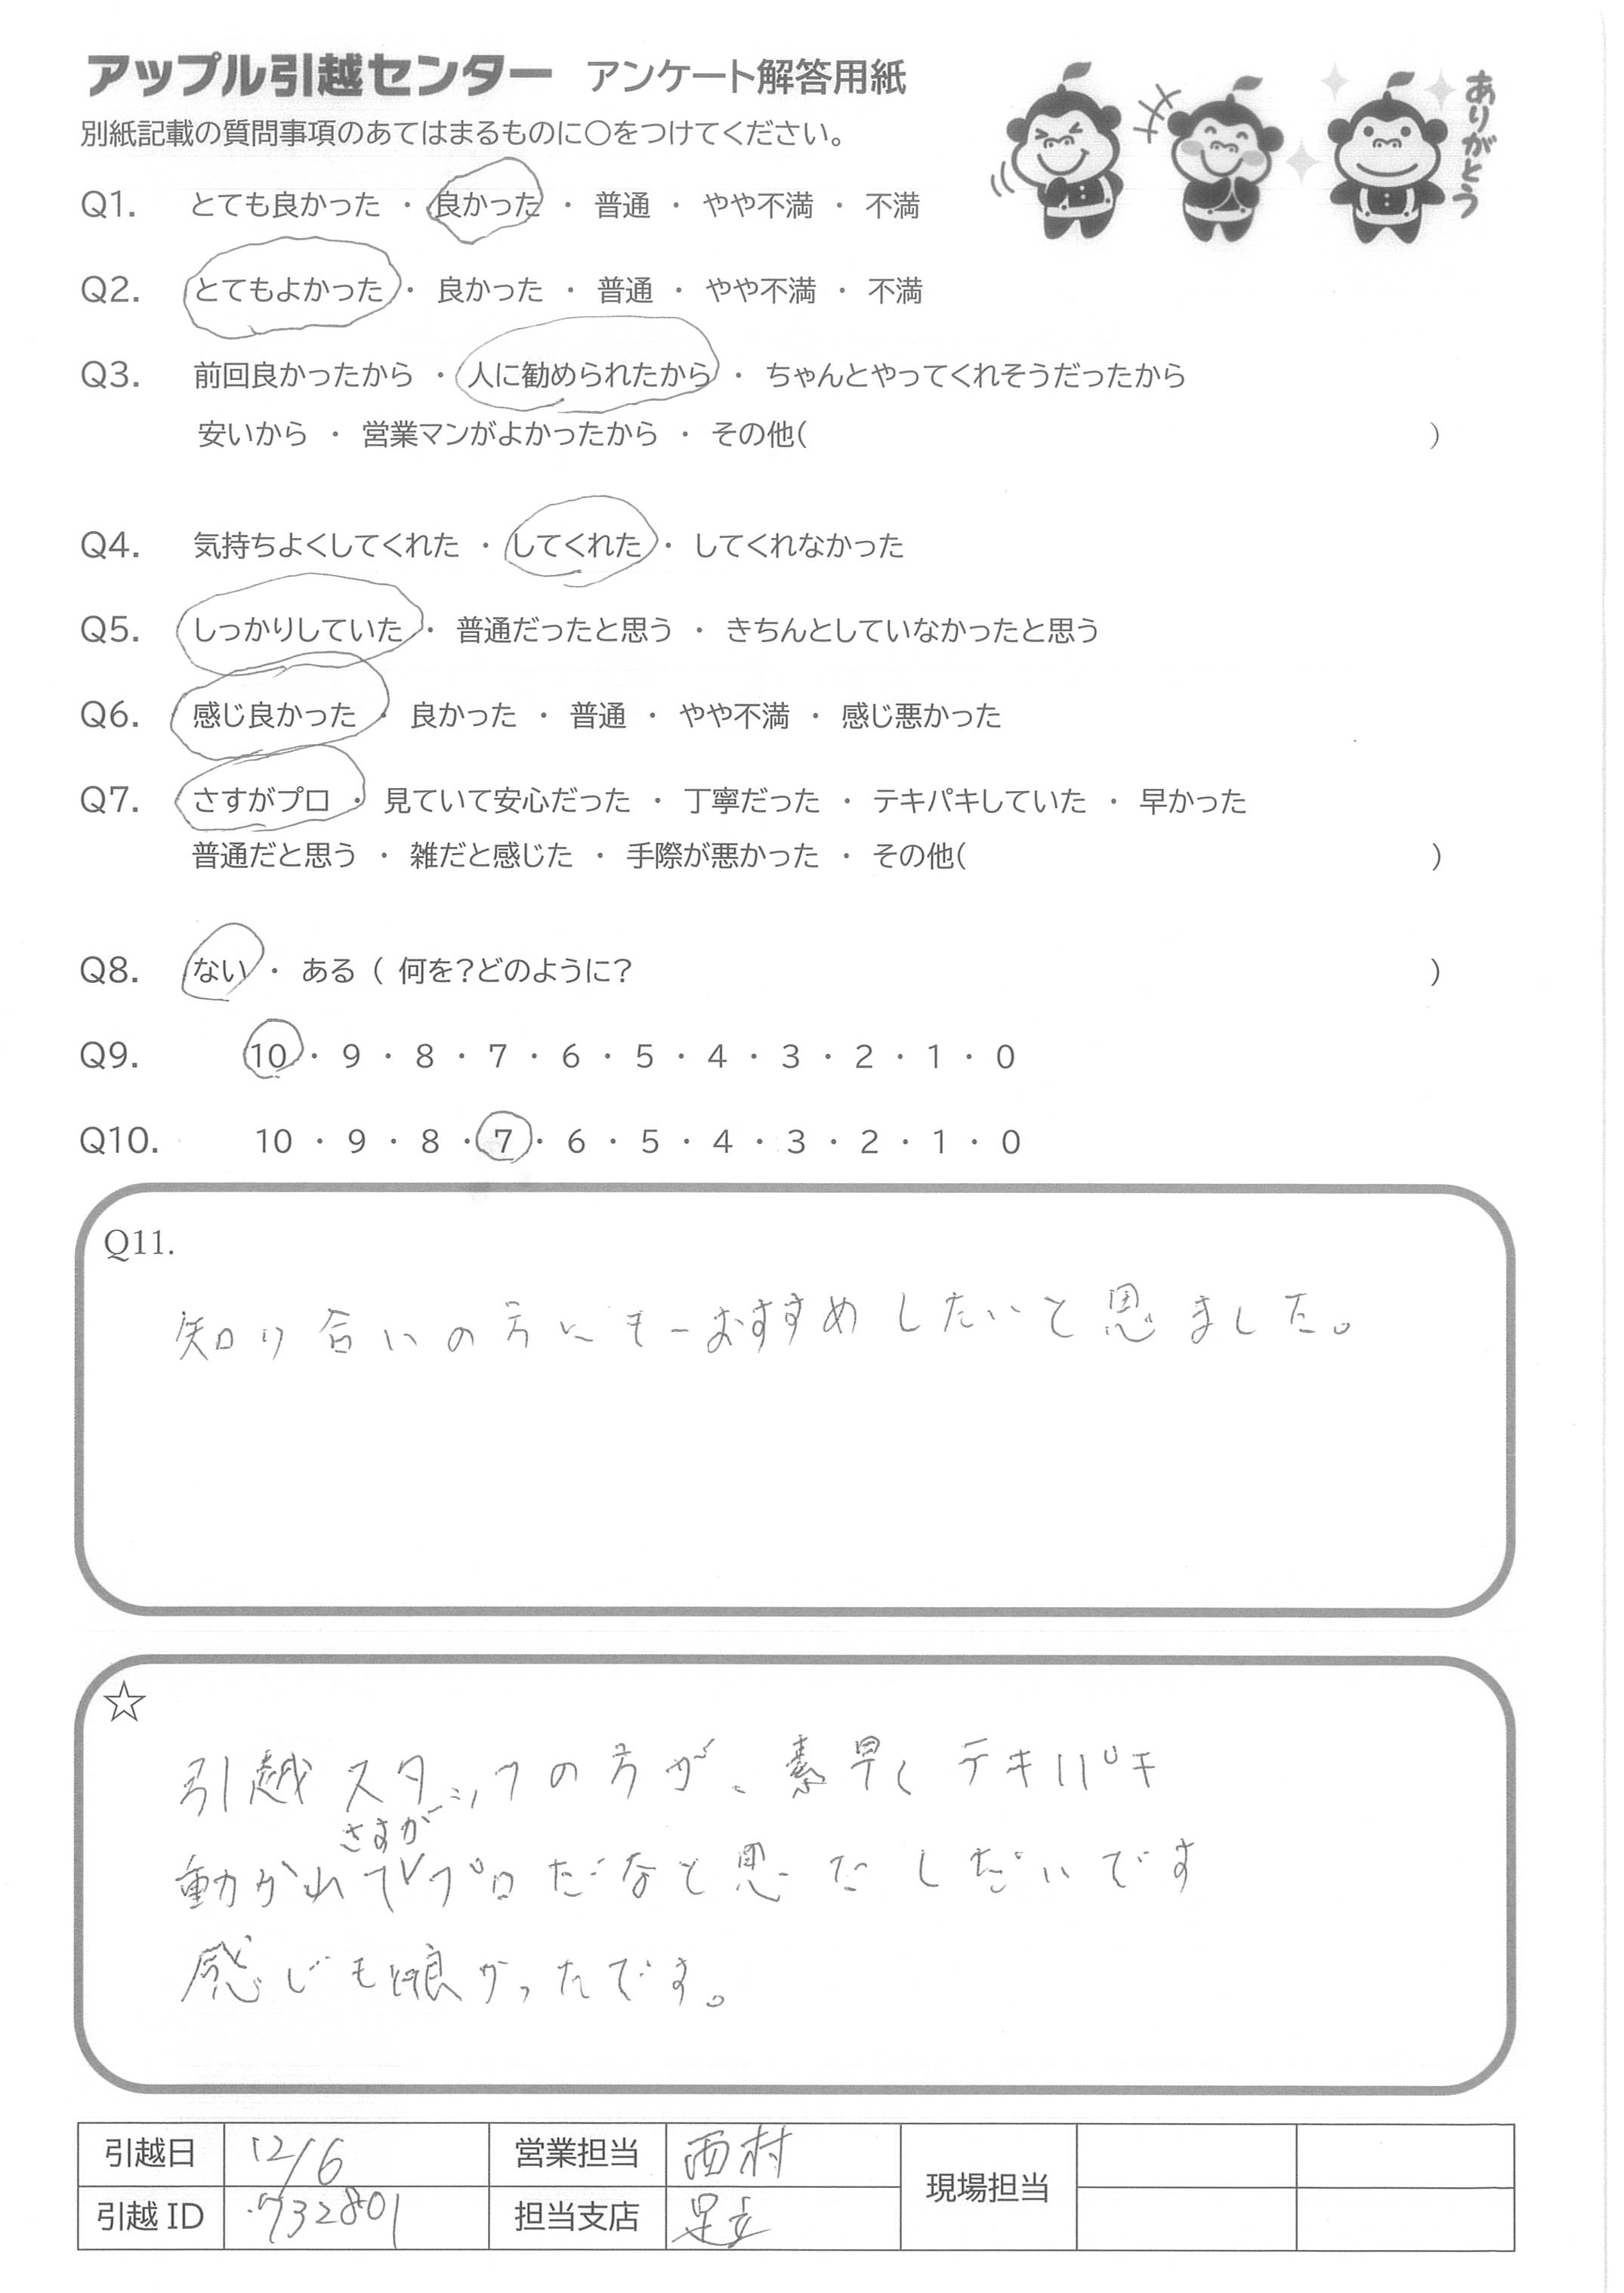 アップル引越センター アンケート解答用紙
ありがとう
別紙記載の質問事項のあてはまるものに〇をつけてください。
Q1. とても良かった ・ 良かった ・ 普通 ・ やや不満 ・ 不満
Q2. とてもよかった ・ 良かった ・ 普通 ・ やや不満 ・ 不満
Q3. 前回良かったから ・ 人に勧められたから ・ ちゃんとやってくれそうだったから
安いから ・ 営業マンがよかったから ・ その他( )
Q4. 気持ちよくしてくれた ・ してくれた ・ してくれなかった
Q5. しっかりしていた ・ 普通だったと思う ・ きちんとしていなかったと思う
Q6. 感じ良かった ・ 良かった ・ 普通 ・ やや不満 ・ 感じ悪かった
Q7. さすがプロ ・ 見ていて安心だった ・ 丁寧だった ・ テキパキしていた ・ 早かった
普通だと思う ・ 雑だと感じた ・ 手際が悪かった ・ その他( )
Q8. ない ・ ある ( 何を?どのように? )
Q9. 10 ・ 9 ・ 8 ・ 7 ・ 6 ・ 5 ・ 4 ・ 3 ・ 2 ・ 1 ・ 0
Q10. 10 ・ 9 ・ 8 ・ 7 ・ 6 ・ 5 ・ 4 ・ 3 ・ 2 ・ 1 ・ 0
Q11.
知り合いの方にもーおすすめしたいと思ました。
☆
引越スタッフの方が、素早くテキパキ
さすが
動かれてプロだなと思たしだいです
感じも良かったです。
引越日 12/6 営業担当 西村 現場担当
引越ID 732801 担当支店 足立